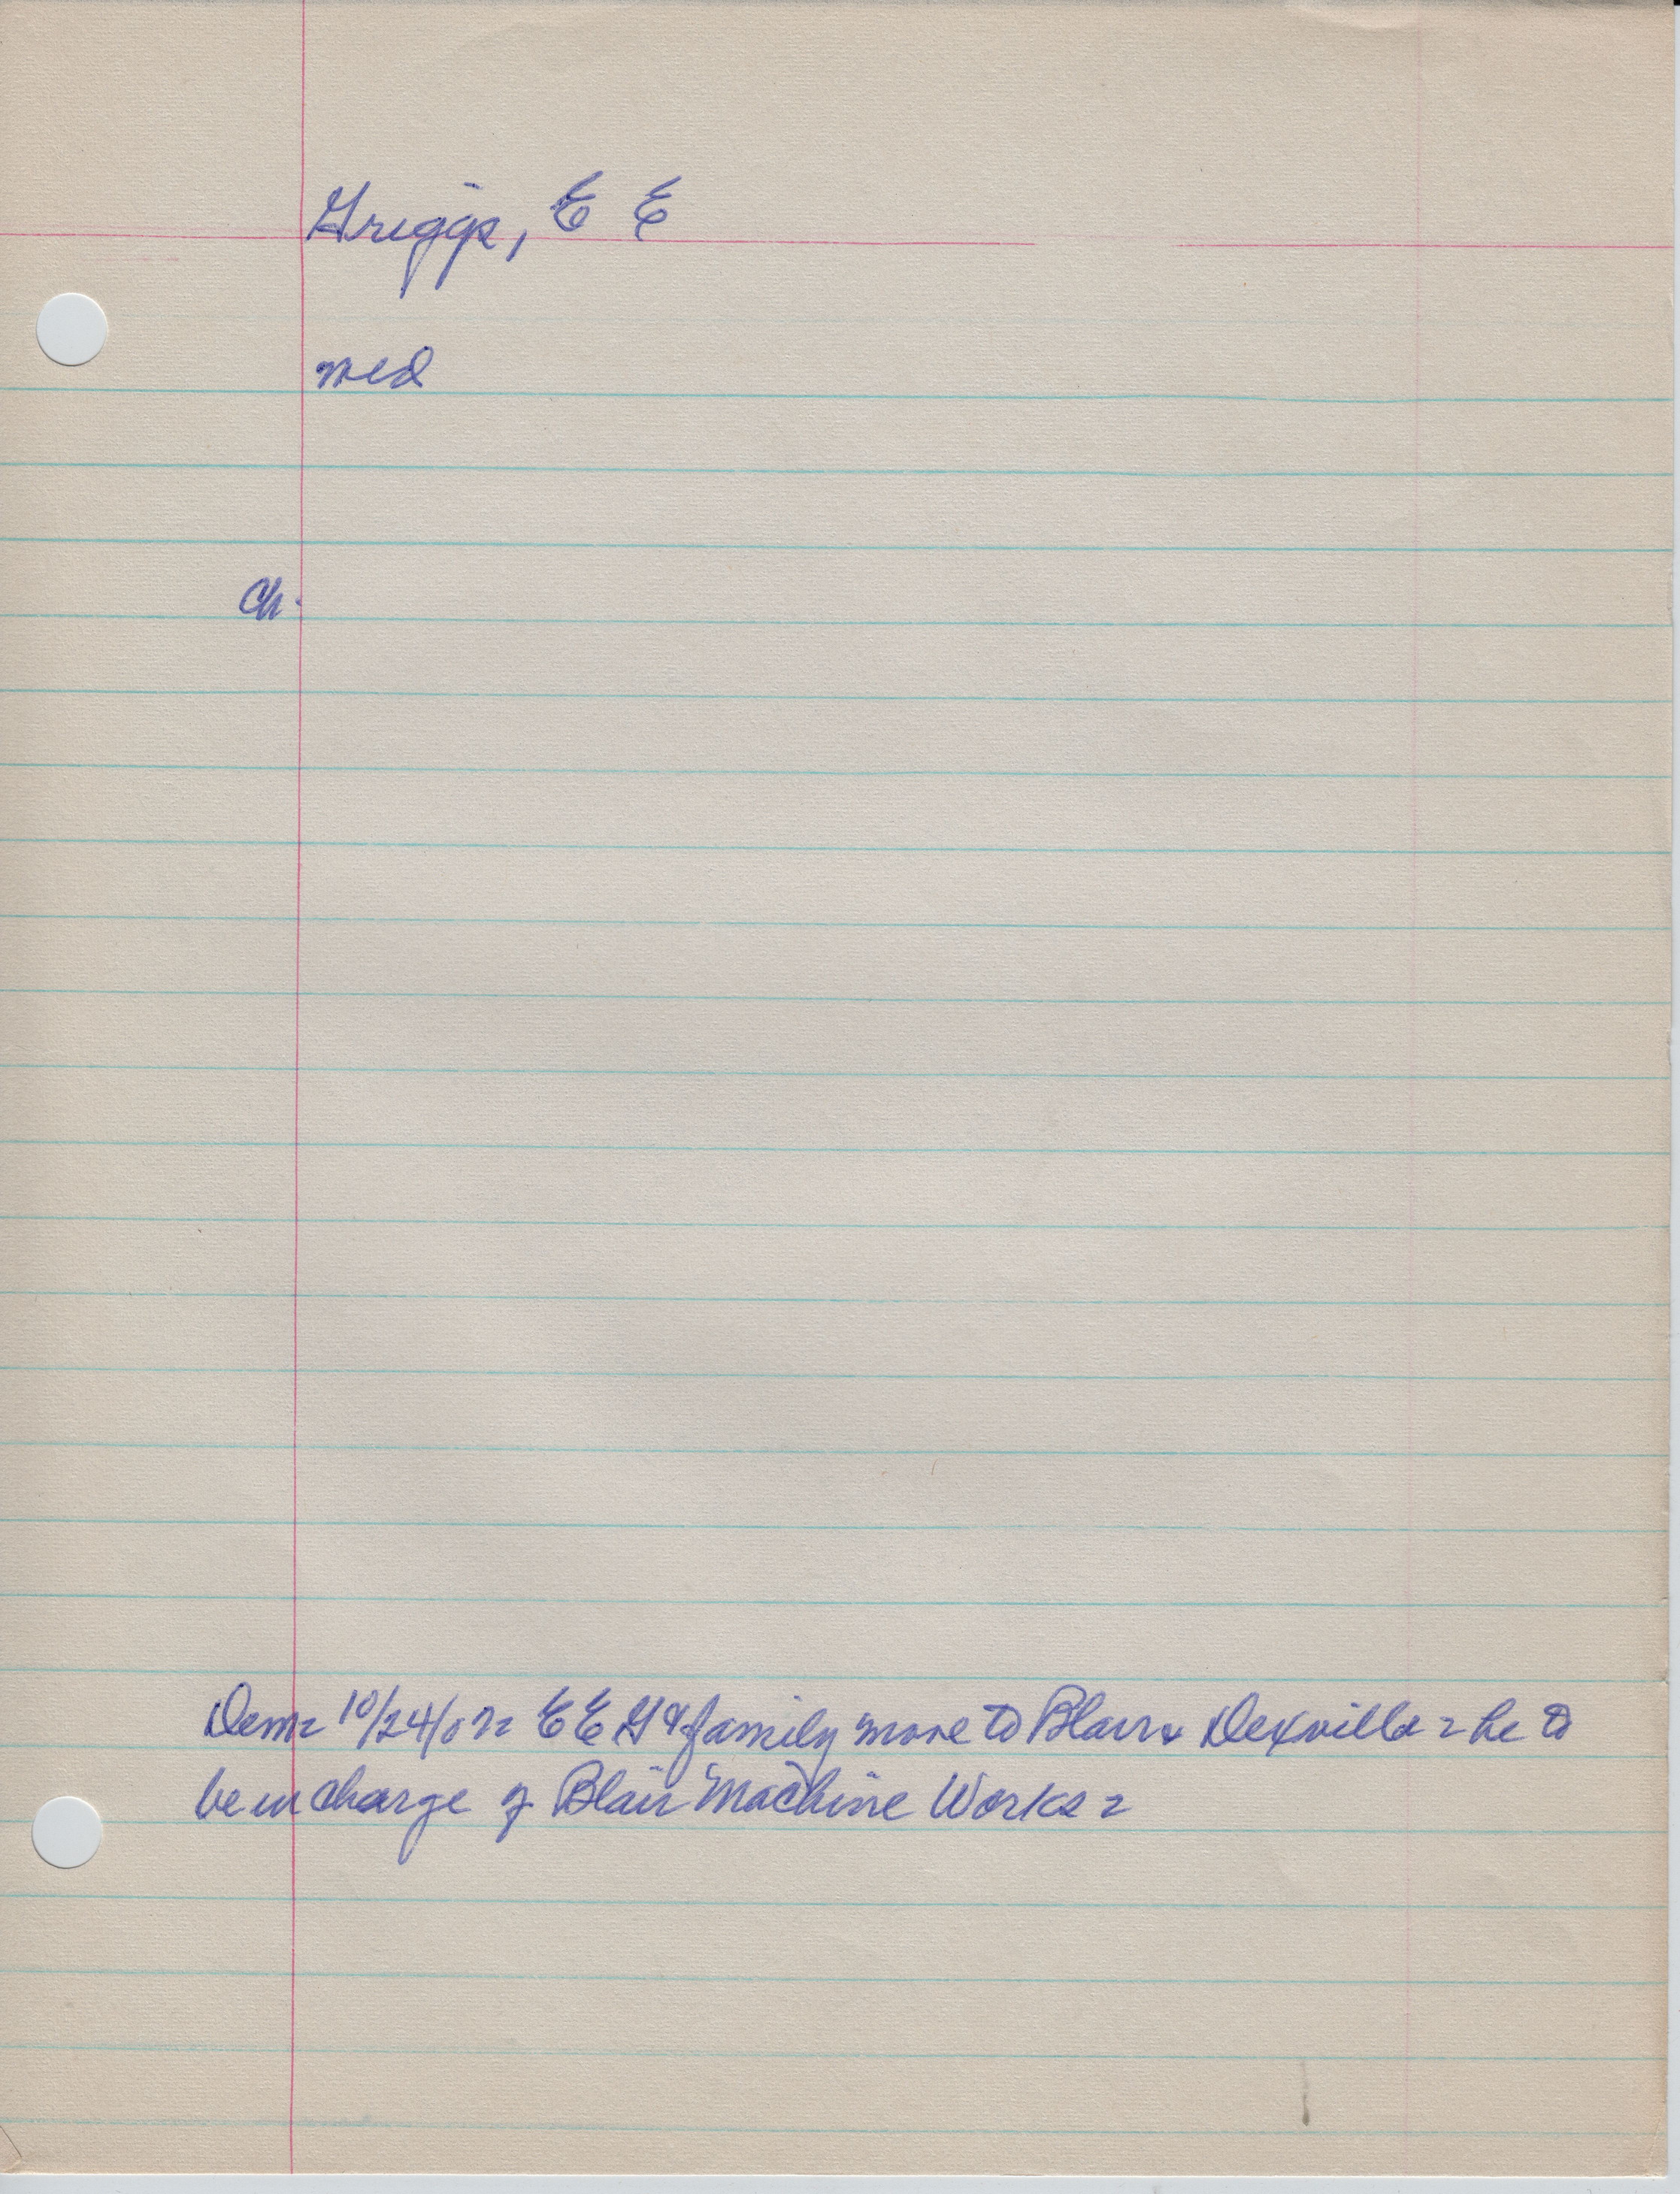 Griggs, E E
med
Ch.
Dem= 10/24/07= E E G & family move to Blairs Dexville = he to
be in charge of Blair Machine Works =